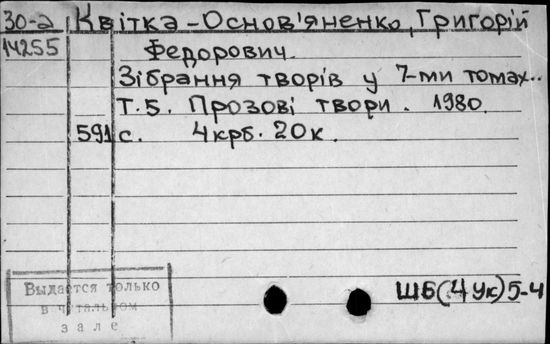 30-а Квітка-Основ'яненко, Григорій
14255 Федорович.
Зібрання творів у 7-ми томах..
Т.5. Прозові твори. 1980.
591 с. 4крб. 20к.
Выдается только
в читальном
зале
ШБ(4Ук)5-4